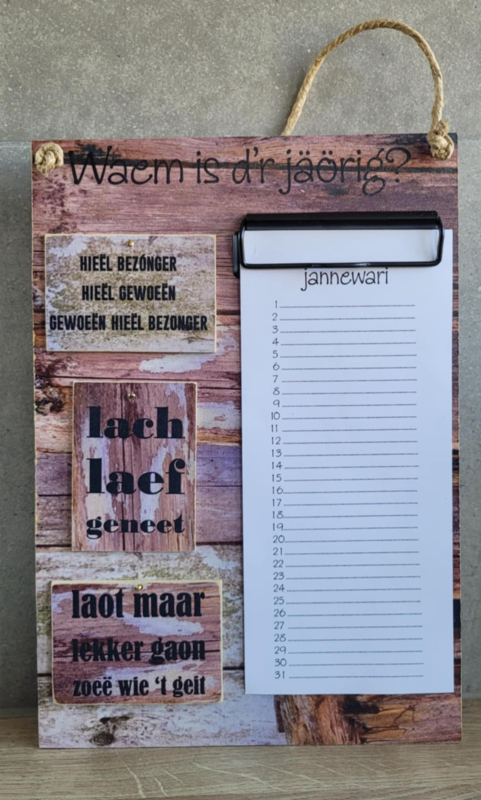 Waem is d'r jäörig?
HIEËL BEZÓNGER
HIEËL GEWOEËN
GEWOEËN HIEËL BEZONGER
lach
laef
geneet
laot maar
lekker gaon
zoeë wie 't geit
jannewari
1
2
3
4
5
6
7
8
9
10
11
12
13
14
15
16
17
18
19
20
21
22
23
24
25
26
27
28
29
30
31